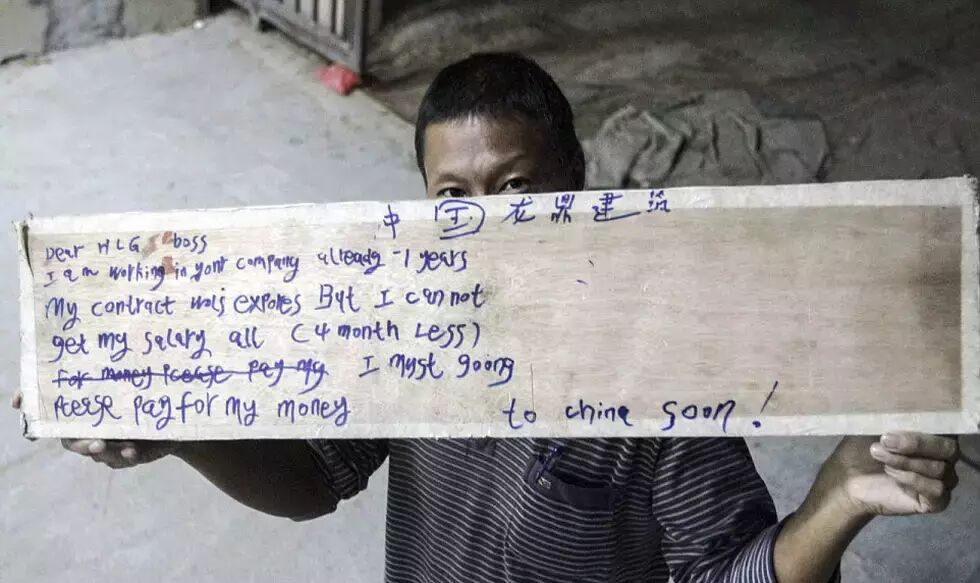 中国龙鼎建筑
Dear HLG boss
I am working in yont company allready -1 years
My contract wolj expores But I can not
get my salary all (4 month Less)
For money Please pay my I myst goong
Please pay for my money to china soon!